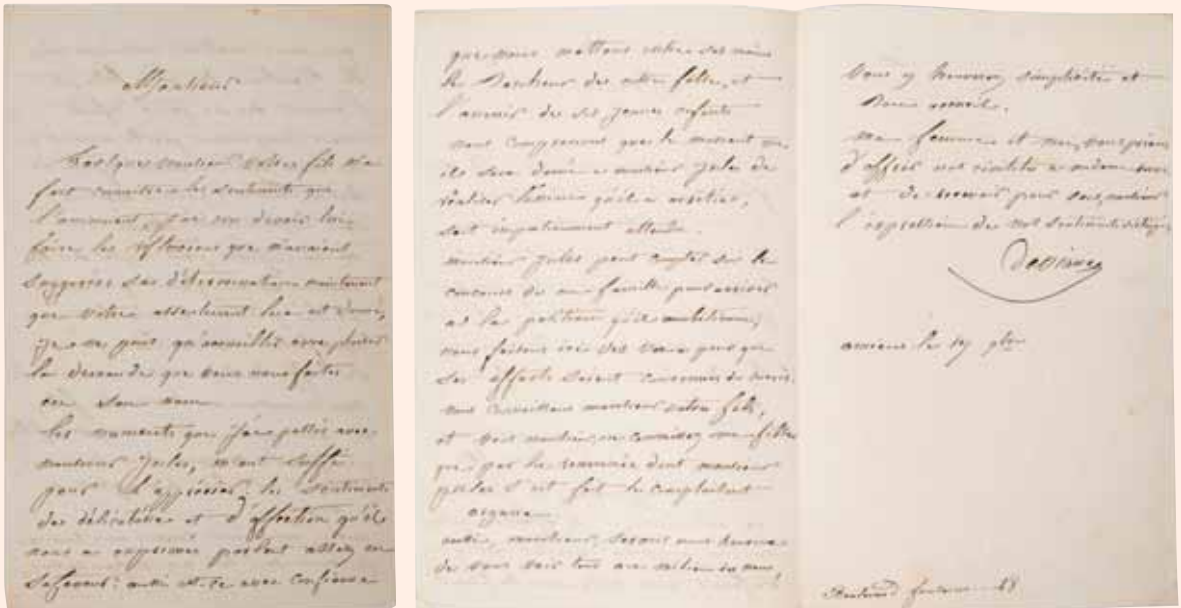 Monsieur
Lorsque monsieur votre fils m'a
fait connaitre les sentiments qui
l'animaient, j'ai cru devoir lui
faire les réflexions que m'avaient
suggérées sa détermination maintenant
que votre assentiment lui est donné,
je ne puis qu'accueillir avec plaisir
la demande que vous nous faites
en son nom
les moments que j'ai passés avec
monsieur Jules, m'ont suffi
pour l'apprécier, les sentiments
de délicatesse et d'affection qu'il
nous a exprimés parlent assez en
sa faveur: aussi est-ce avec confiance
que nous mettons entre ses mains
le Bonheur de notre fille, et
l'avenir de ses jeunes enfants
nous comprenons que le moment
où il sera donné a monsieur Jules de
réaliser
soit impatiemment attendu.
monsieur Jules peut compter sur le
concours de ma famille pour arriver
a la position qu'il ambitionne;
nous faisons ici des voeux pour que
ses efforts soient couronnés de succès.
nous connaissons monsieur votre fils,
et vous monsieur, ne connaissez ma fille
que par la renommée dont monsieur
Jules s'est fait le complaisant
organe
aussi, monsieur, serions nous heureux
de vous voir tous au milieu de nous,
Vous y trouverez simplicité et
Bon accueil.
ma femme et moi, vous prions
d'offrir nos civilités a madame
et de recevoir pour vous, monsieur
l'expression de nos sentiments distingués
Deviane
amiens le 19
Boulevard fontaine 48